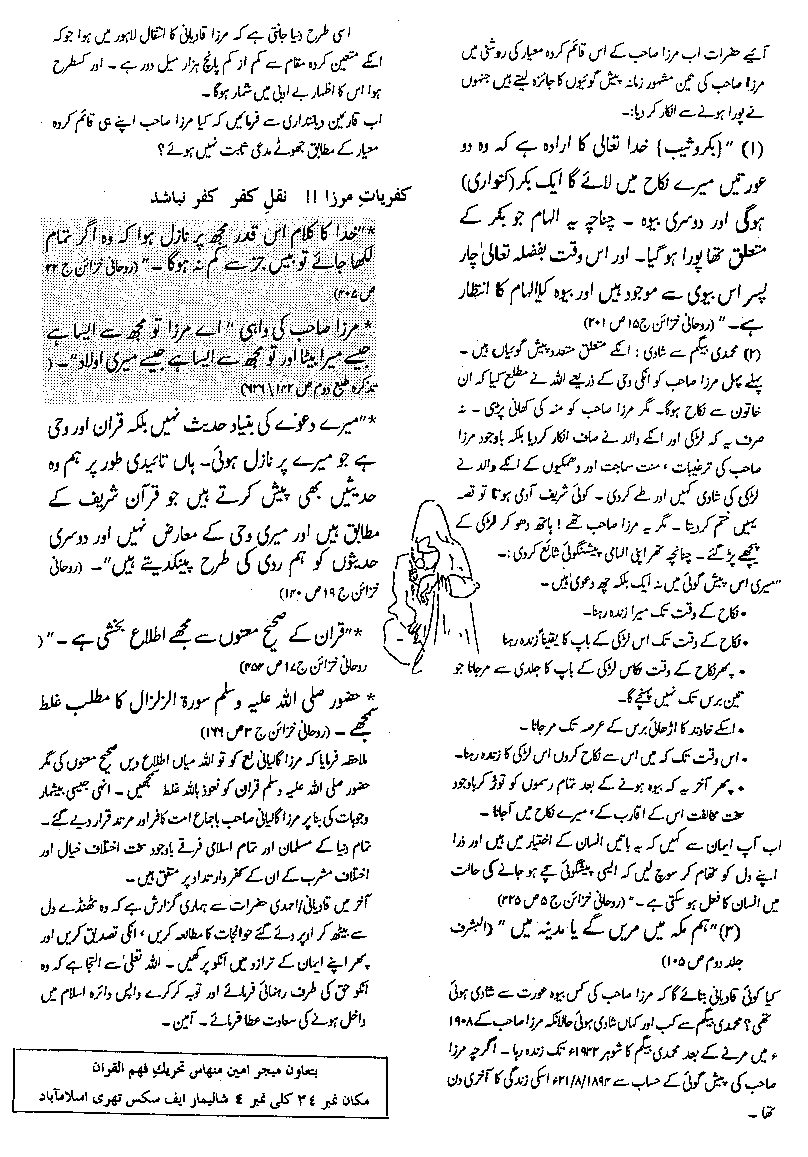 آیئے حضرات اب مرزا صاحب کے اس قائم کردہ معیار کی روشنی میں
مرزا صاحب کی تین مشہور زمانہ پیش گوئیوں کا جائزہ لیتے ہیں جنہوں
نے پورا ہونے سے انکار کر دیا:۔
(۱) ”{بکر و ثیب} خدا تعالیٰ کا ارادہ ہے کہ وہ دو
عورتیں میرے نکاح میں لائے گا ایک بکر (کنواری)
ہوگی اور دوسری بیوہ ۔ چناچہ یہ الہام جو بکر کے
متعلق تھا پورا ہو گیا۔ اور اس وقت بفضلہ تعالیٰ چار
پسر اس بیوی سے موجود ہیں اور بیوہ کیا الہام کا انتظار
ہے۔“ (روحانی خزائن ج ۱۵ ص ۲۰۱)
(۲) محمدی بیگم سے شادی : انکے متعلق متعدد پیش گوئیاں ہیں ۔
پہلے پہل مرزا صاحب کو انکی وحی کے ذریعے اللہ نے مطلع کیا کہ ان
خاتون سے نکاح ہوگا۔ مگر مرزا صاحب کو منہ کی کھانی پڑی ۔ نہ
صرف یہ کہ لڑکی اور انکے والد نے صاف انکار کر دیا بلکہ باوجود مرزا
صاحب کی ترغیبات ، منت سماجت اور دھمکیوں کے انکے والد نے
لڑکی کی شادی کہیں اور طے کر دی ۔ کوئی شریف آدمی ہوتا تو قصہ
یہیں ختم کر دیتا ۔ مگر یہ مرزا صاحب تھے ! ہاتھ دھو کر لڑکی کے
پیچھے پڑ گئے ۔ چنانچہ پھر اپنی الہامی پیشنگوئی شائع کر دی :۔
”میری اس پیش گوئی میں نہ ایک بلکہ چھ دعوی ہیں ۔
• نکاح کے وقت تک میرا زندہ رہنا۔
• نکاح کے وقت تک اس لڑکی کے باپ کا یقیناً زندہ رہنا
• پھر نکاح کے وقت کا اس لڑکی کے باپ کا جلدی سے مرجانا جو
تین برس تک نہیں پہنچے گا۔
• اسکے خاوند کا اڑھائی برس کے عرصہ تک مرجانا ۔
• اس وقت تک کہ میں اس سے نکاح کروں اس لڑکی کا زندہ رہنا۔
• پھر آخر یہ کہ بیوہ ہونے کے بعد تمام رسموں کو توڑ کر باوجود
سخت مخالفت اس کے اقارب کے، میرے نکاح میں آجانا ۔
اب آپ ایمان سے کہیں کہ یہ باتیں انسان کے اختیار میں ہیں اور ذرا
اپنے دل کو تھام کر سوچ لیں کہ ایسی پیشگوئی سچے ہو جانے کی حالت
میں انسان کا فعل ہو سکتی ہے ۔“ (روحانی خزائن ج ۵ ص ۳۲۵)
(۳) ”ہم مکہ میں مریں گے یا مدینہ میں“ (البشریٰ
جلد دوم ص ۱۰۵)
کیا کوئی قادیانی بتائے گا کہ مرزا صاحب کی کس بیوہ عورت سے شادی ہوئی
تھی ؟ محمدی بیگم سے کب اور کہاں شادی ہوئی حالانکہ مرزا صاحب کے ۱۹۰۸
ء میں مرنے کے بعد محمدی بیگم کا شوہر ۱۹۳۲ء تک زندہ رہا ۔ اگرچہ مرزا
صاحب کی پیش گوئی کے حساب سے ۲۱/۸/۱۸۹۴ء اسکی زندگی کا آخری دن
تھا ۔
اسی طرح دنیا جانتی ہے کہ مرزا قادیانی کا انتقال لاہور میں ہوا جوکہ
انکے متعین کردہ مقام سے کم از کم پانچ ہزار میل دور ہے ۔ اور کسطرح
ہوا اس کا اظہار بے ادبی میں شمار ہوگا ۔
اب قارئین دیانتداری سے فرمائیں کہ کیا مرزا صاحب اپنے ہی قائم کردہ
معیار کے مطابق جھوٹے مدعی ثابت نہیں ہوئے ؟
کفریاتِ مرزا !! نقلِ کفر کفر نباشد
* ”خدا کا کلام اس قدر مجھ پر نازل ہوا کہ وہ اگر تمام
لکھا جائے تو بیس جز سے کم نہ ہوگا ۔“ (روحانی خزائن ج ۲۲
ص ۴۰۷)
* مرزا صاحب کی واہی ” اے مرزا تو مجھ سے ایسا ہے
جیسے میرا بیٹا اور تو مجھ سے ایسا ہے جیسے میری اولاد“۔ (
تذکرہ طبع دوم ص ۴۴۲\۶۳۶)
* ”میرے دعوے کی بنیاد حدیث نہیں بلکہ قران اور وحی
ہے جو میرے پر نازل ہوئی۔ ہاں تائیدی طور پر ہم وہ
حدیثیں بھی پیش کرتے ہیں جو قرآن شریف کے
مطابق ہیں اور میری وحی کے معارض نہیں اور دوسری
حدیثوں کو ہم ردی کی طرح پینکدیتے ہیں“۔ (روحانی
خزائن ج ۱۹ ص ۱۴۰)
* ”قران کے صحیح معنوں سے مجھے اطلاع بخشی ہے ۔“ (
روحانی خزائن ج ۱۷ ص ۴۵۴)
* حضور صلی اللہ علیہ وسلم سورۃ الزلزال کا مطلب غلط
سمجھے ۔ (روحانی خزائن ج ۳ ص ۱۶۶)
ملاحظہ فرمایا کہ مرزا گالیانی لع کو تو اللہ میاں اطلاع دیں صحیح معنوں کی مگر
حضور صلی اللہ علیہ وسلم قران کو نعوذ باللہ غلط سمجھیں ۔ انہی جیسی بیشمار
وجوہات کی بنا پر مرزا گالیانی صاحب باجماع امت کافر اور مرتد قرار دیے گئے ۔
تمام دنیا کے مسلمان اور تمام اسلامی فرقے باوجود سخت اختلاف خیال اور
اختلاف مشرب کے ان کے کفر و ارتداد پر متفق ہیں ۔
آخر میں قادیانی/احمدی حضرات سے ہماری گزارش ہے کہ وہ ٹھنڈے دل
سے بیٹھ کر اوپر دئے گئے حوالجات کا مطالعہ کریں ، انکی تصدیق کریں اور
پھر اپنے ایمان کے ترازو میں انکو پرکھیں ۔ اللہ تعلیٰ سے التجا ہے کہ وہ
انکو حق کی طرف رہنمائی فرمائے اور توبہ کرکے واپس دائرہ اسلام میں
داخل ہونے کی سعادت عطا فرمائے ۔ آمین ۔
بتعاون میجر امین منہاس تحریک فہم القران
مکان نمبر ۳٤ گلی نمبر ٤ شالیمار ایف سکس تھری اسلامآباد